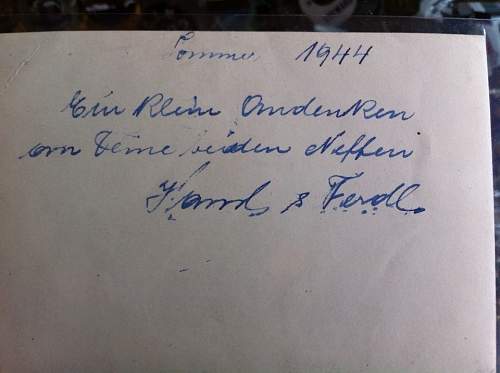 Sommer 1944
Ein klein Andenken
an Deine beiden Neffen
Hansl & Ferdl.